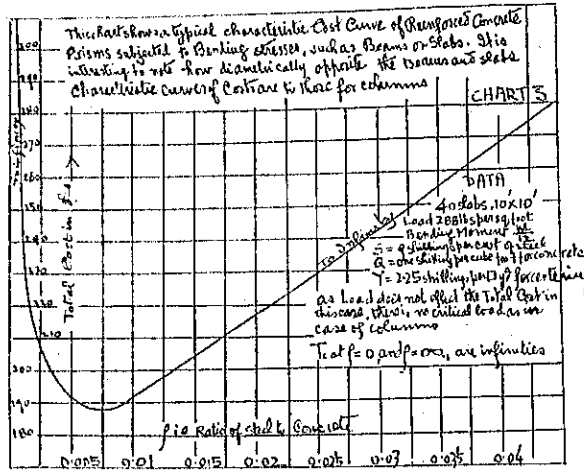 This chart shows a typical characteristic Cost Curve of Reinforced Concrete
Prisms subjected to Bending stresses, such as Beams or Slabs. It is
interesting to note how diametrically opposite the Beams and slabs
Characteristic curves of Costs are to those for columns
CHART 3
To infinity
Total Cost in £s
To Infinity
DATA
40 slabs, 10'x10'
Load 288 lbs per sq foot
Bending Moment
S = 9 shilling per cwt of steel
Q = one shilling per cube foot for concrete
Y = 2.25 shilling per
as Load does not effect the Total Cost in
this case, there is no critical load as in
case of columns
Tc at ρ = 0, and ρ = ∞, are infinities
300
290
280
270
260
250
240
230
220
210
200
190
180
ρ i.e. Ratio of steel to Concrete
0.005 0.01 0.015 0.02 0.025 0.03 0.035 0.04